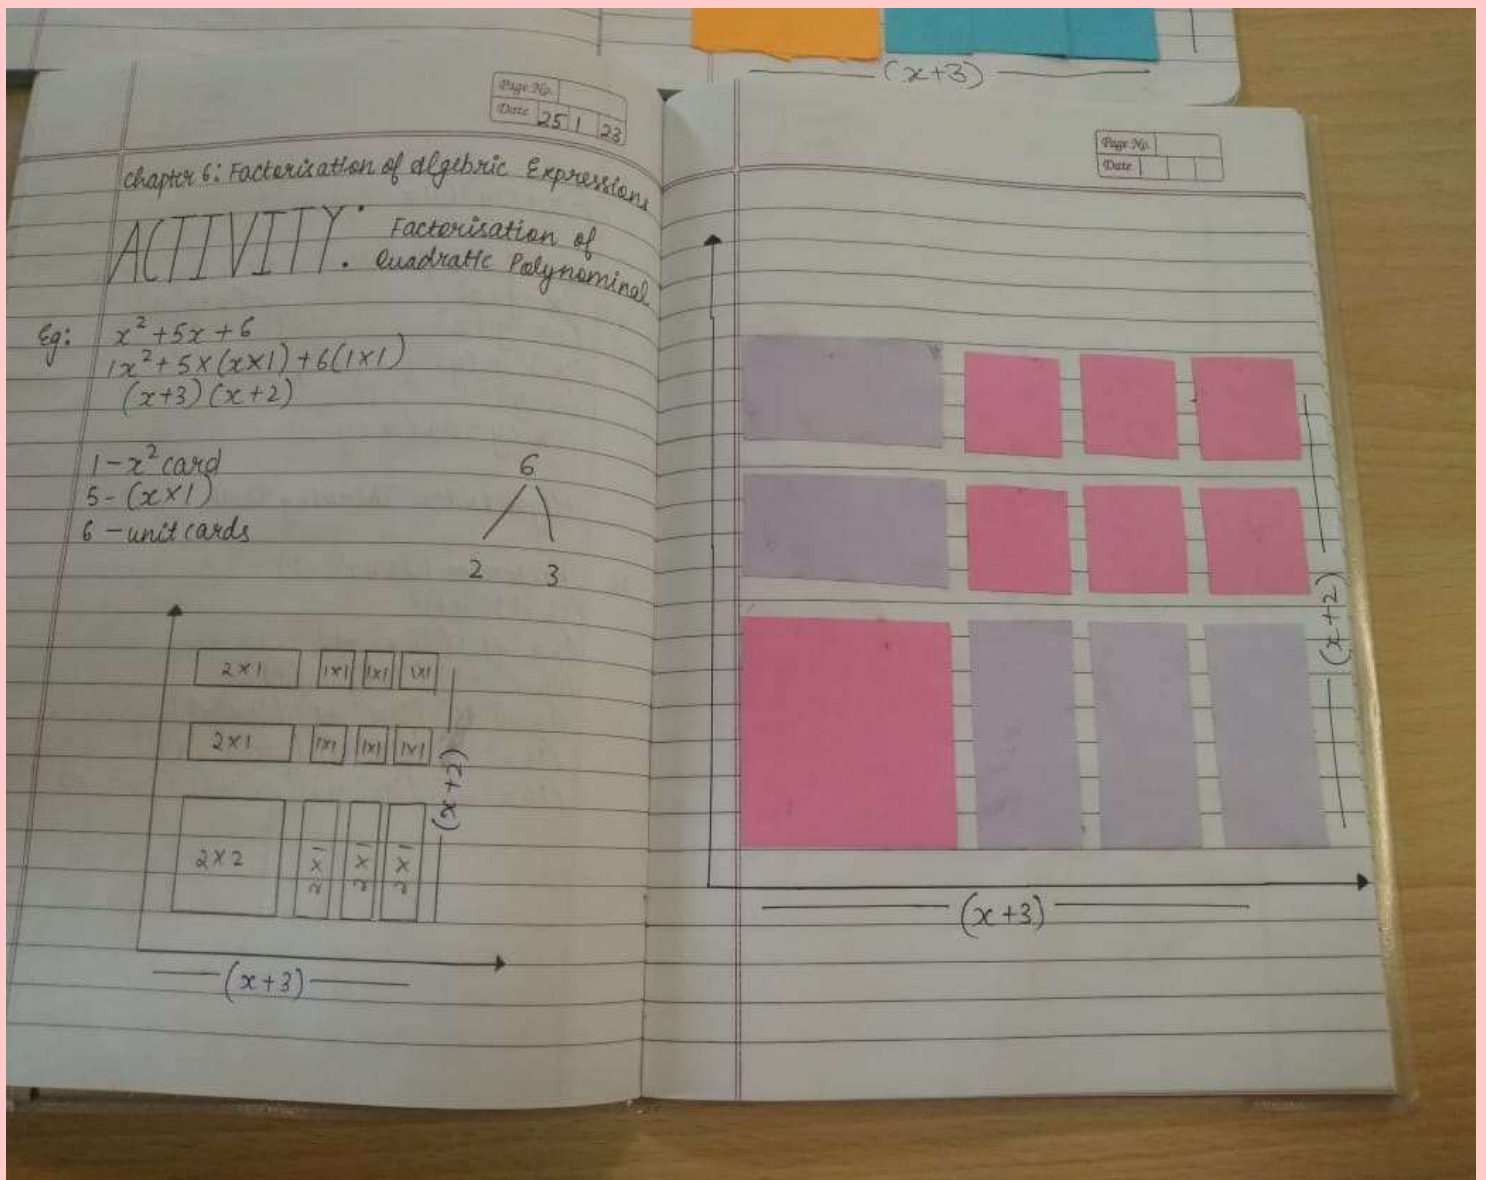 (x+3)
Page No.
Date 25 1 23
Chapter 6: Factorisation of Algebric Expressions
ACTIVITY: Factorisation of
Quadratic Polynominal
Eg: x² + 5x + 6
1x² + 5 × (x×1) + 6(1×1)
(x+3) (x+2)
1 - x² card
5 - (x×1)
6 - unit cards
6
2 3
2×1 1×1 1×1 1×1
2×1 1×1 1×1 1×1
(x+2)
2×2 2×1 2×1 2×1
(x+3)
Page No.
Date
(x+2)
(x+3)